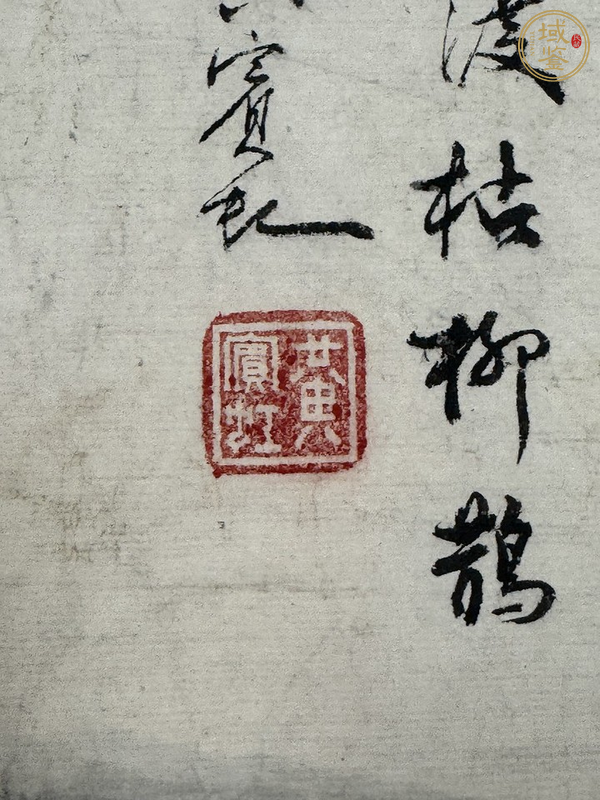 渡枯柳鵲
賓虹
黃賓虹
域鉴